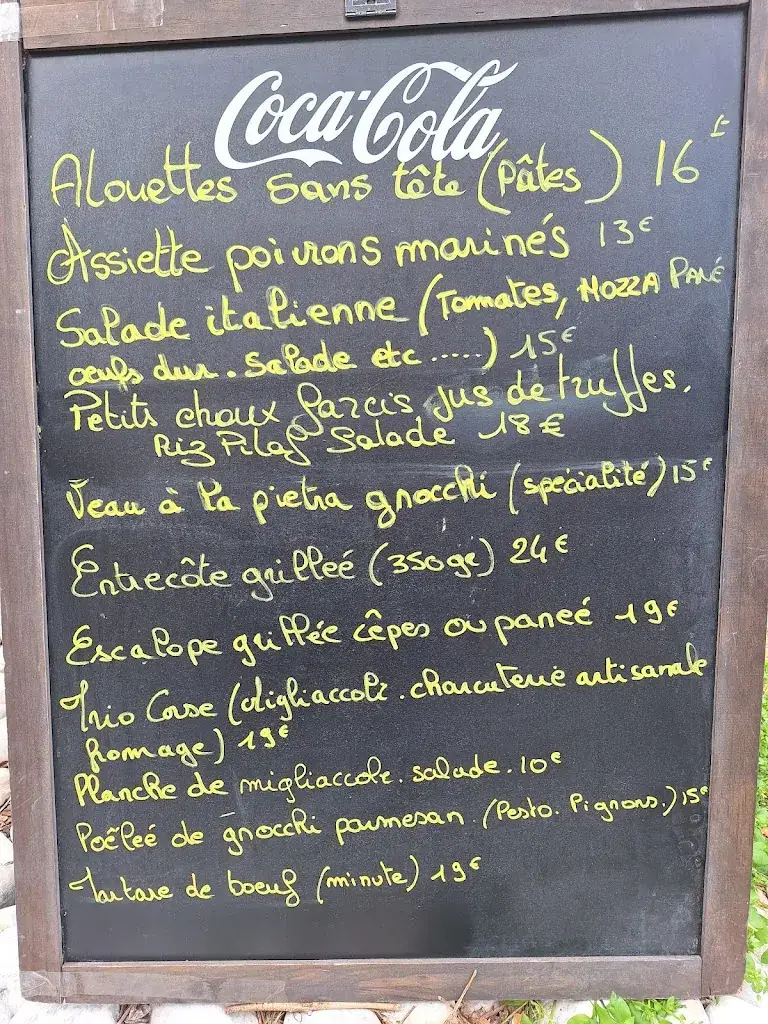 Coca-Cola
Alouettes sans tête (pâtes) 16€
Assiette poivrons marinés 13€
Salade italienne (Tomates, MOZZA PANÉ
oeufs dur. salade etc .....) 15€
Petits choux farcis jus de truffes.
Riz Pilaf Salade 18€
Veau à la pietra gnocchi (spécialité) 15€
Entrecôte grilleé (350gr) 24€
Escalope grillée cêpes ou paneé 19€
Trio Corse (Migliaccoli. charcuterie artisanale
fromage) 19€
Planche de migliaccole. salade. 10€
Poêleé de gnocchi parmesan (Pesto. Pignons.) 15€
Tartare de boeuf (minute) 19€